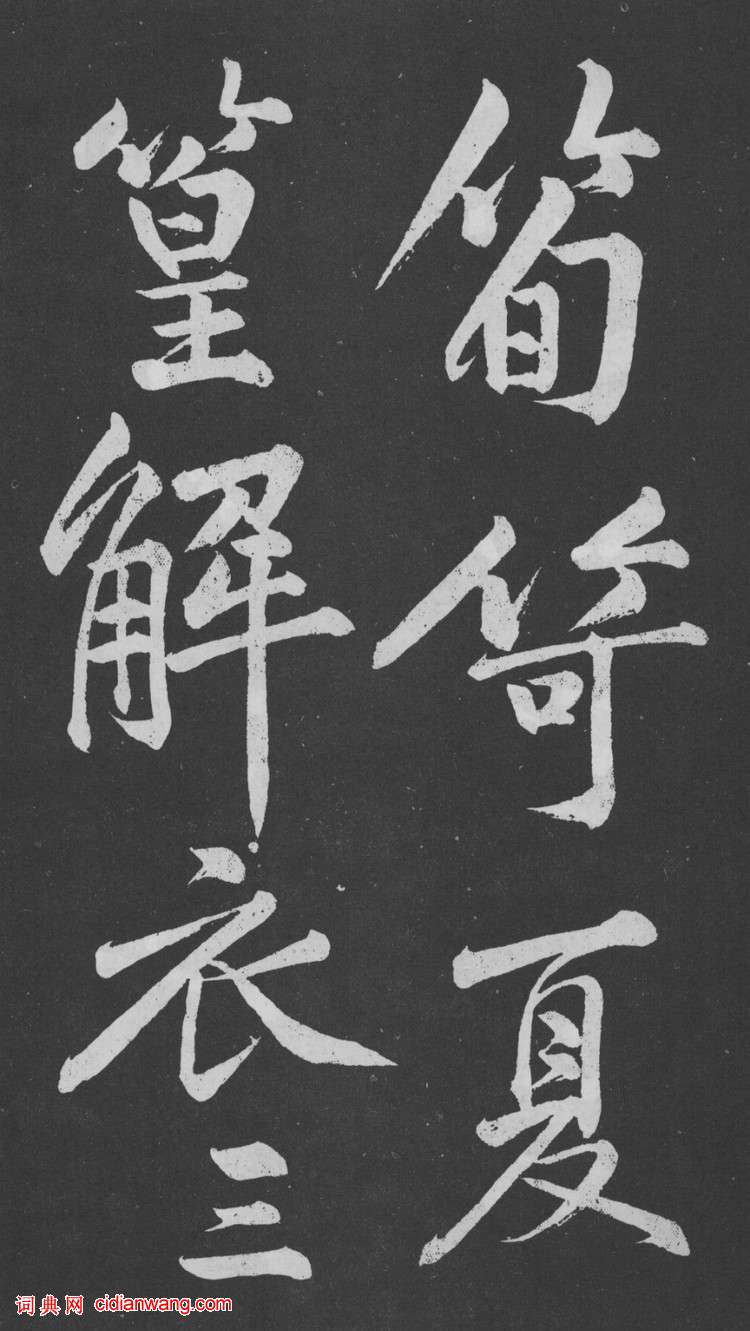 筍笴夏
篁解衣三
词典网 cidianwang.com